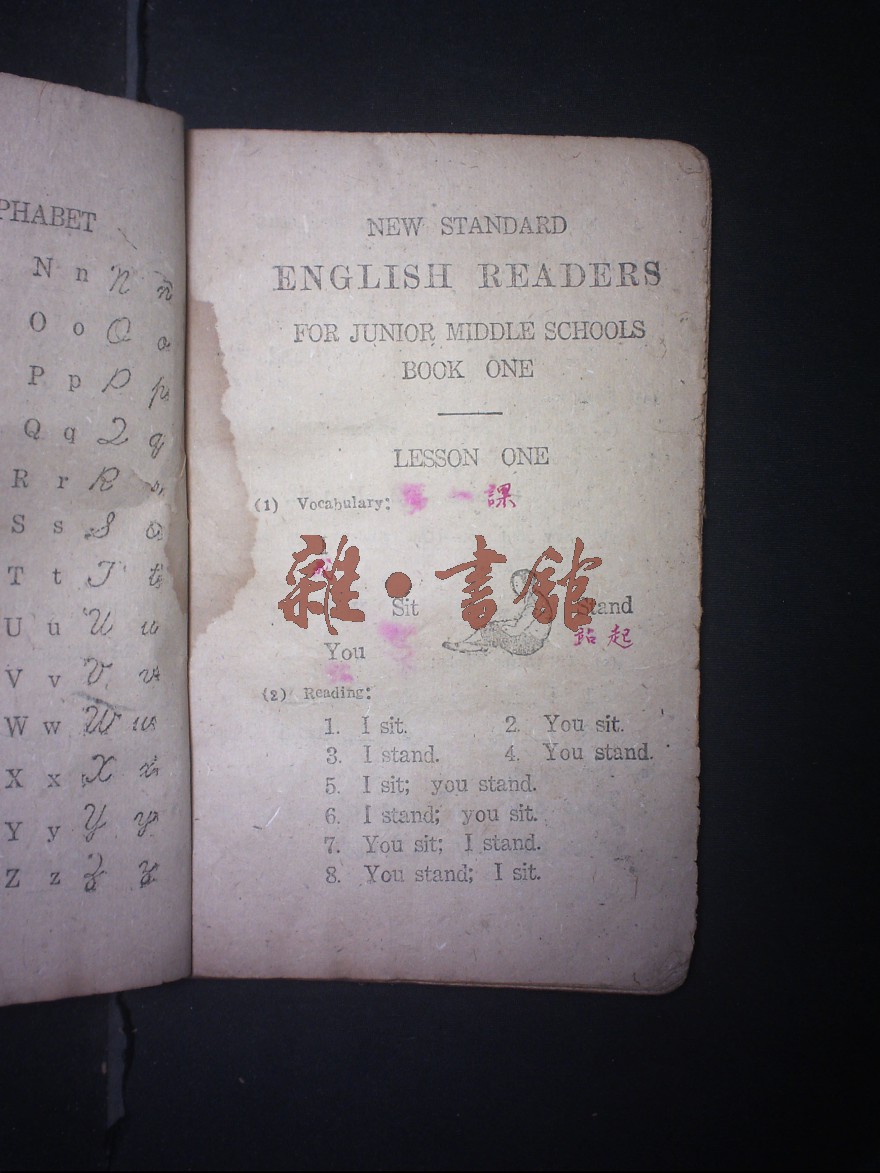 PHABET
N n N n
O o O o
P p P p
Q q Q q
R r R r
S s S s
T t T t
U u U u
V v V v
W w W w
X x X x
Y y Y y
Z z Z z
NEW STANDARD
ENGLISH READERS
FOR JUNIOR MIDDLE SCHOOLS
BOOK ONE
LESSON ONE
(1) Vocabulary: 第一課
雜·書館
Sit Stand
跕起
You
(2) Reading:
1. I sit. 2. You sit.
3. I stand. 4. You stand.
5. I sit; you stand.
6. I stand; you sit.
7. You sit; I stand.
8. You stand; I sit.